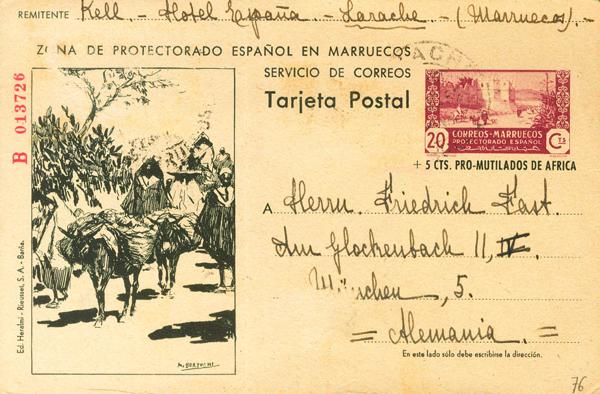 REMITENTE Kell. - Hotel España. - Larache. - (Marruecos). -
ZONA DE PROTECTORADO ESPAÑOL EN MARRUECOS
SERVICIO DE CORREOS
Tarjeta Postal
B 013726
20 CORREOS-MARRUECOS Cts
PROTECTORADO ESPAÑOL
+ 5 CTS. PRO-MUTILADOS DE AFRICA
A Herrn. Friedrich Fast.
Am Glockenbach 11, IV.
München, 5.
= Alemania. =
En este lado sólo debe escribirse la dirección.
Ed. Heralmi - Rieusset, S. A. - Barna.
M. BERTUCHI
76